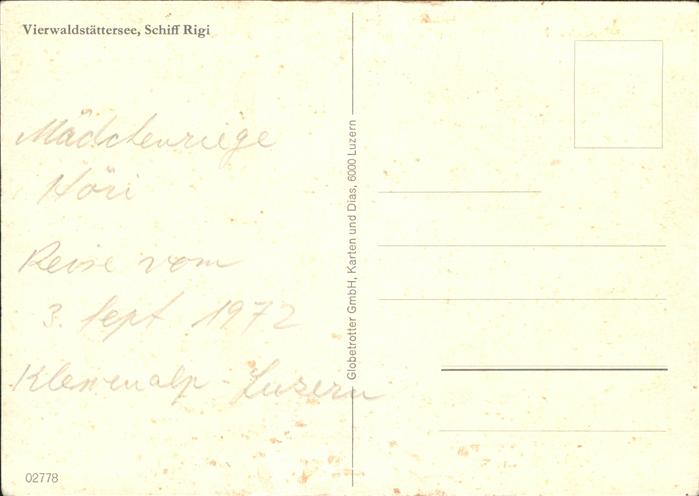 Vierwaldstättersee, Schiff Rigi
Mädchenriege
Höri
Reise vom
3. Sept 1972
Klewenalp - Luzern
Globetrotter GmbH, Karten und Dias, 6000 Luzern
02778